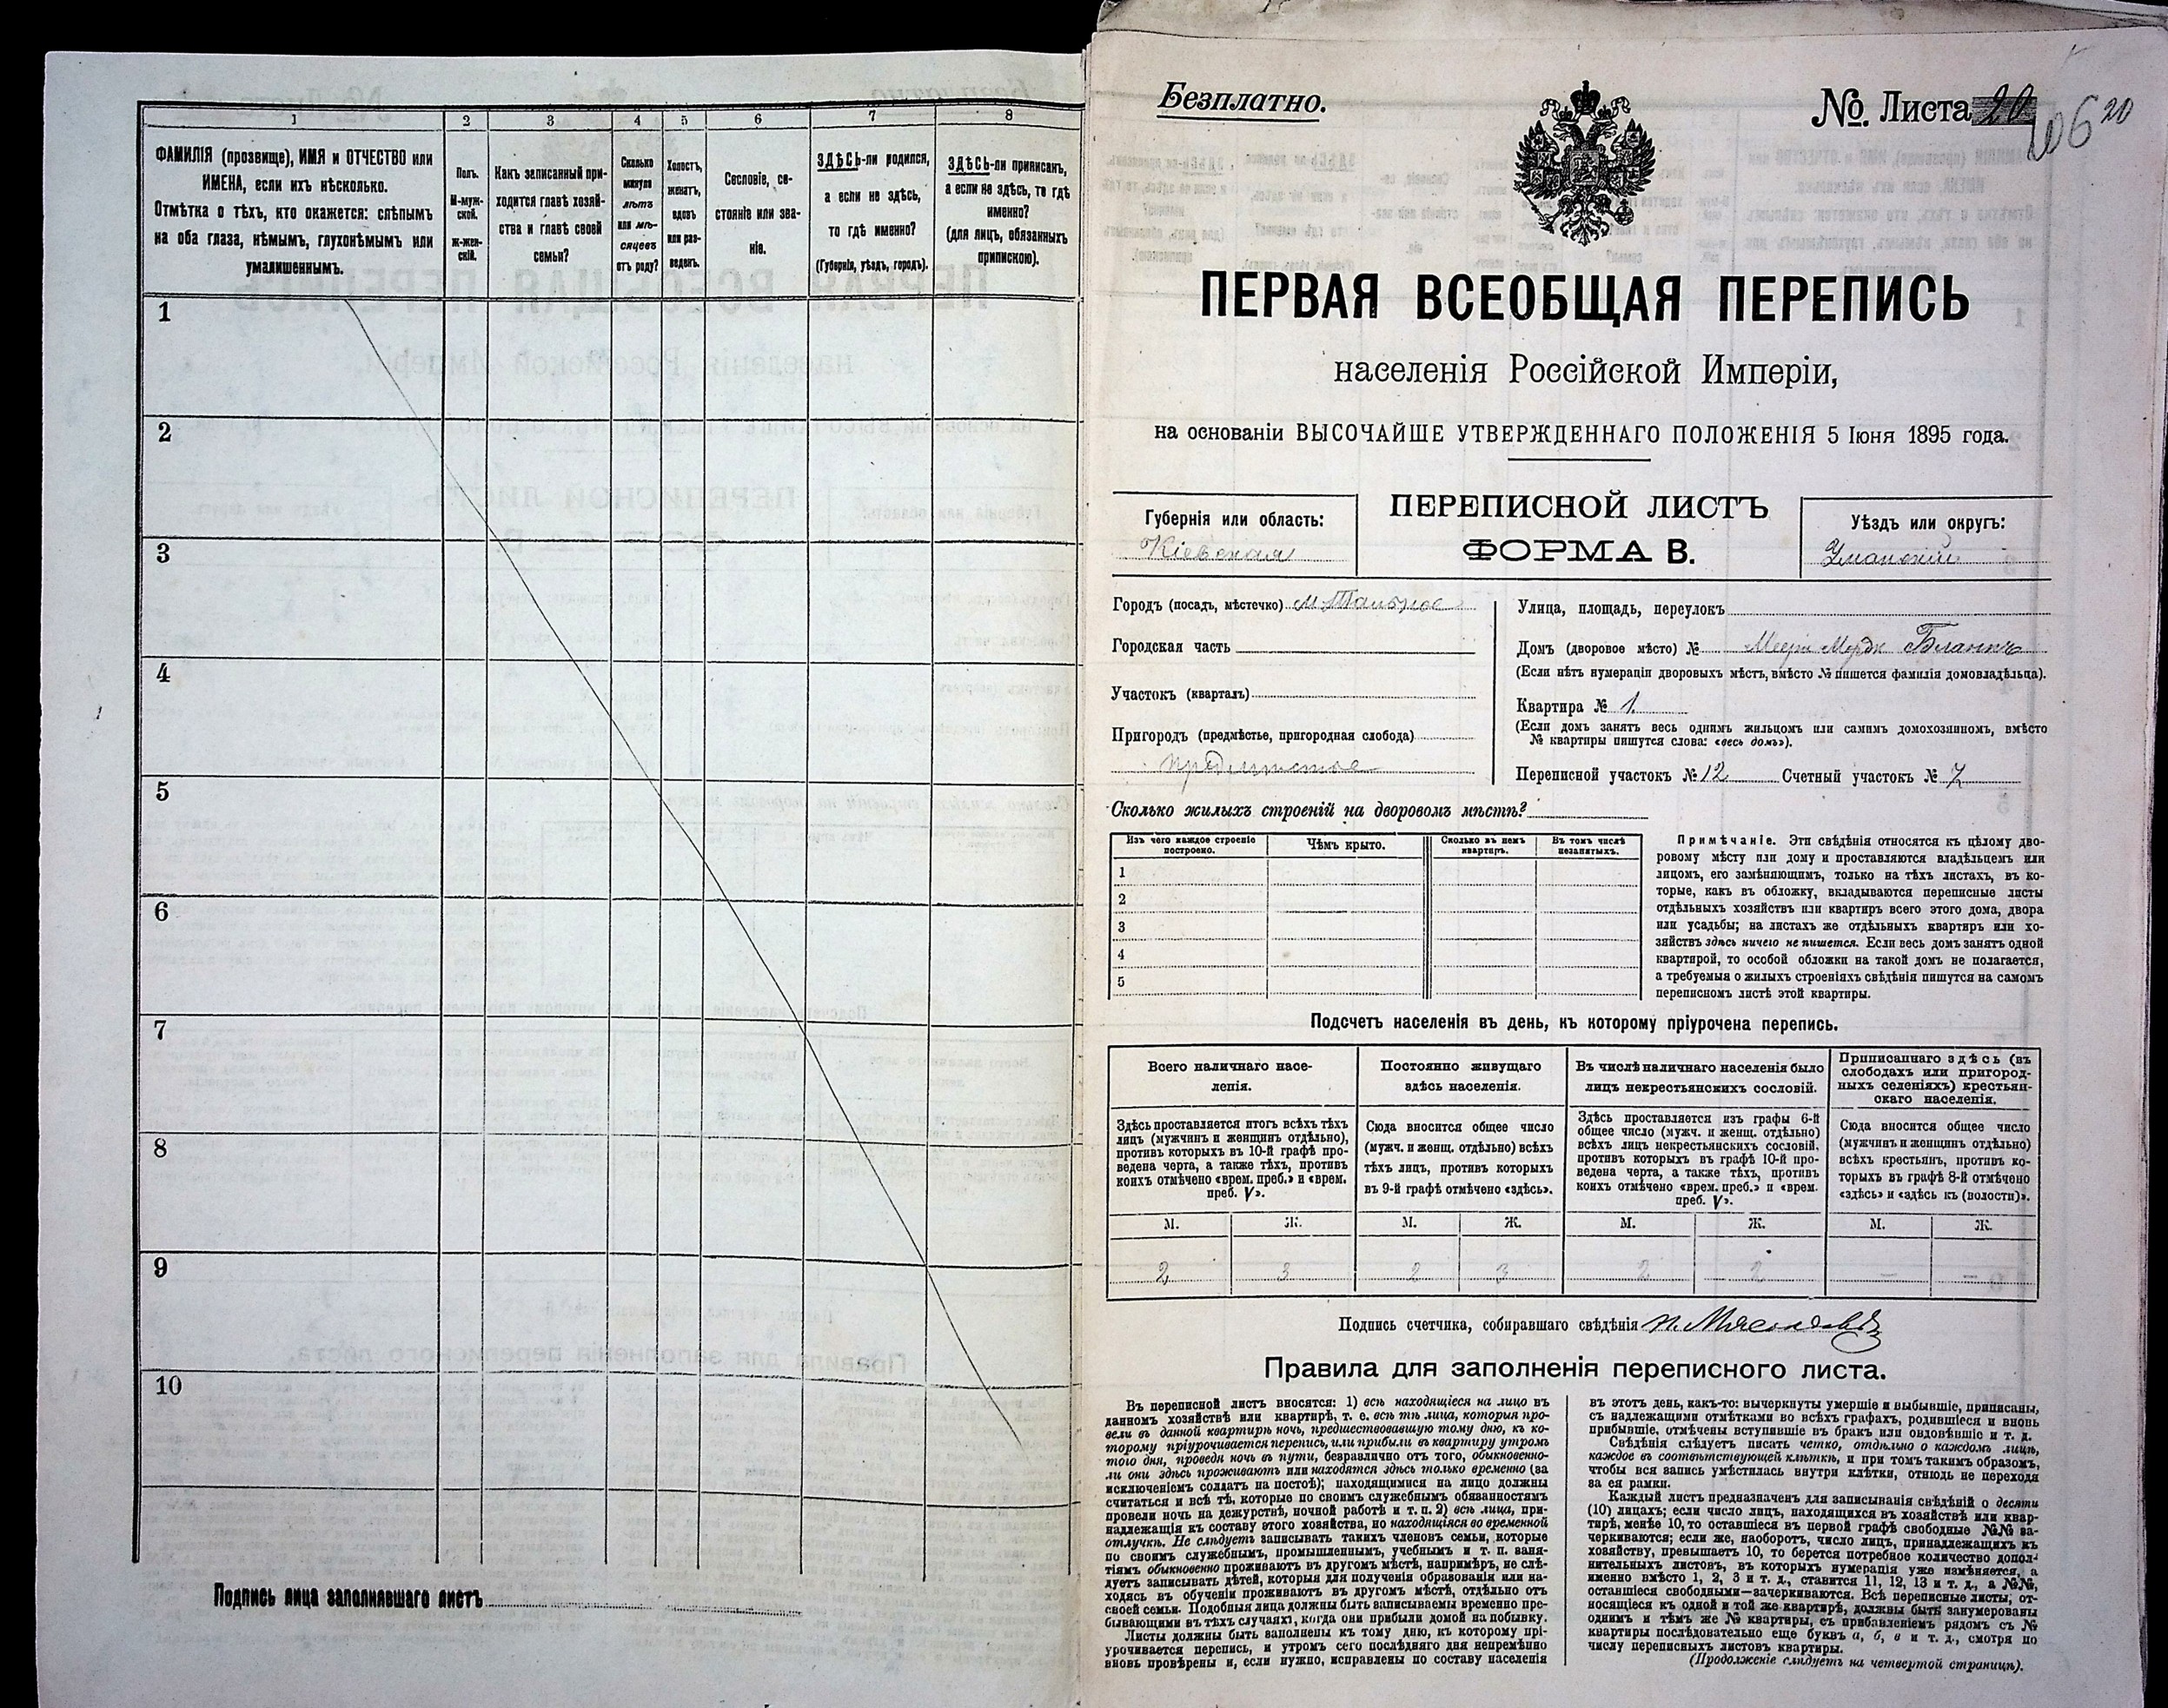 1
2
3
4
5
6
7
8
ФАМИЛІЯ (прозвище), ИМЯ и ОТЧЕСТВО или
ИМЕНА, если ихъ нѣсколько.
Отмѣтка о тѣхъ, кто окажется: слѣпымъ
на оба глаза, нѣмымъ, глухонѣмымъ или
умалишеннымъ.
Полъ.
М-муж-
ской.
ж-жен-
скій.
Какъ записанный при-
ходится главѣ хозяй-
ства и главѣ своей
семьи?
Сколько
минуло
лѣтъ
или мѣ-
сяцевъ
отъ роду?
Холостъ,
женатъ,
вдовъ
или раз-
веденъ.
Сословіе, со-
стояніе или зва-
ніе.
ЗДѢСЬ-ли родился,
а если не здѣсь,
то гдѣ именно?
(Губернія, уѣздъ, городъ).
ЗДѢСЬ-ли приписанъ,
а если не здѣсь, то гдѣ
именно?
(для лицъ, обязанныхъ
припискою).
1
2
3
4
5
6
7
8
9
10
Подпись лица заполнявшаго листъ
Безплатно.
№ Листа 20
106 20
ПЕРВАЯ ВСЕОБЩАЯ ПЕРЕПИСЬ
населенія Россійской Имперіи,
на основаніи ВЫСОЧАЙШЕ УТВЕРЖДЕННАГО ПОЛОЖЕНІЯ 5 Іюня 1895 года.
Губернія или область:
Кіевская
ПЕРЕПИСНОЙ ЛИСТЪ
ФОРМА В.
Уѣздъ или округъ:
Уманскій
Городъ (посадъ, мѣстечко) м. Тальное
Городская часть
Участокъ (кварталъ)
Пригородъ (предмѣстье, пригородная слобода)
предмѣстье
Улица, площадь, переулокъ
Домъ (дворовое мѣсто) № Мееръ Мордк Бланкъ
(Если нѣтъ нумераціи дворовыхъ мѣстъ, вмѣсто № пишется фамилія домовладѣльца).
Квартира № 1.
(Если домъ занятъ весь однимъ жильцомъ или самимъ домохозяиномъ, вмѣсто
№ квартиры пишутся слова: «весь домъ»).
Переписной участокъ № 12 Счетный участокъ № 7
Сколько жилыхъ строеній на дворовомъ мѣстѣ?
Изъ чего каждое строеніе
построено.
Чѣмъ крыто.
Сколько въ немъ
квартиръ.
Въ томъ числѣ
незанятыхъ.
1
2
3
4
5
Примѣчаніе. Эти свѣдѣнія относятся къ цѣлому дво-
ровому мѣсту или дому и проставляются владѣльцемъ или
лицомъ, его замѣняющимъ, только на тѣхъ листахъ, въ ко-
торые, какъ въ обложку, вкладываются переписные листы
отдѣльныхъ хозяйствъ или квартиръ всего этого дома, двора
или усадьбы; на листахъ же отдѣльныхъ квартиръ или хо-
зяйствъ здѣсь ничего не пишется. Если весь домъ занятъ одной
квартирой, то особой обложки на такой домъ не полагается,
а требуемыя о жилыхъ строеніяхъ свѣдѣнія пишутся на самомъ
переписномъ листѣ этой квартиры.
Подсчетъ населенія въ день, къ которому пріурочена перепись.
Всего наличнаго насе-
ленія.
Постоянно живущаго
здѣсь населенія.
Въ числѣ наличнаго населенія было
лицъ некрестьянскихъ сословій.
Приписаннаго здѣсь (въ
слободахъ или пригород-
ныхъ селеніяхъ) крестьян-
скаго населенія.
Здѣсь проставляется итогъ всѣхъ тѣхъ
лицъ (мужчинъ и женщинъ отдѣльно),
противъ которыхъ въ 10-й графѣ про-
ведена черта, а также тѣхъ, противъ
коихъ отмѣчено «врем. преб.» и «врем.
преб. V».
Сюда вносится общее число
(мужч. и женщ. отдѣльно) всѣхъ
тѣхъ лицъ, противъ которыхъ
въ 9-й графѣ отмѣчено «здѣсь».
Здѣсь проставляется изъ графы 6-й
общее число (мужч. и женщ. отдѣльно)
всѣхъ лицъ некрестьянскихъ сословій,
противъ которыхъ въ графѣ 10-й про-
ведена черта, а также тѣхъ, противъ
коихъ отмѣчено «врем. преб.» и «врем.
преб. V».
Сюда вносится общее число
(мужчинъ и женщинъ отдѣльно)
всѣхъ крестьянъ, противъ ко-
торыхъ въ графѣ 8-й отмѣчено
«здѣсь» и «здѣсь къ (волости)».
М. Ж. М. Ж. М. Ж. М. Ж.
2 3 2 3 2 2 – –
Подпись счетчика, собиравшаго свѣдѣнія
Правила для заполненія переписного листа.
Въ переписной листъ вносятся: 1) всѣ находящіеся на лицо въ
данномъ хозяйствѣ или квартирѣ, т. е. всѣ тѣ лица, которыя про-
вели въ данной квартирѣ ночь, предшествовавшую тому дню, къ ко-
торому пріурочивается перепись, или прибыли въ квартиру утромъ
того дня, проведя ночь въ пути, безразлично отъ того, обыкновенно-
ли они здѣсь проживаютъ или находятся здѣсь только временно (за
исключеніемъ солдатъ на постоѣ); находящимися на лицо должны
считаться и всѣ тѣ, которые по своимъ служебнымъ обязанностямъ
провели ночь на дежурствѣ, ночной работѣ и т. п. 2) всѣ лица, при-
надлежащія къ составу этого хозяйства, но находящіяся во временной
отлучкѣ. Не слѣдуетъ записывать такихъ членовъ семьи, которые
по своимъ служебнымъ, промышленнымъ, учебнымъ и т. п. заня-
тіямъ обыкновенно проживаютъ въ другомъ мѣстѣ, напримѣръ, не слѣ-
дуетъ записывать дѣтей, которыя для полученія образованія или на-
ходясь въ обученіи проживаютъ въ другомъ мѣстѣ, отдѣльно отъ
своей семьи. Подобныя лица должны быть записываемы временно пре-
бывающими въ тѣхъ случаяхъ, когда они прибыли домой на побывку.
Листы должны быть заполнены къ тому дню, къ которому прі-
урочивается перепись, и утромъ сего послѣдняго дня непремѣнно
вновь провѣрены и, если нужно, исправлены по составу населенія
въ этотъ день, какъ-то: вычеркнуты умершіе и выбывшіе, приписаны,
съ надлежащими отмѣтками во всѣхъ графахъ, родившіеся и вновь
прибывшіе, отмѣчены вступившіе въ бракъ или овдовѣвшіе и т. д.
Свѣдѣнія слѣдуетъ писать четко, отдѣльно о каждомъ лицѣ,
каждое въ соотвѣтствующей клѣткѣ, и при томъ такимъ образомъ,
чтобы вся запись умѣстилась внутри клѣтки, отнюдь не переходя
за ея рамки.
Каждый листъ предназначенъ для записыванія свѣдѣній о десяти
(10) лицахъ; если число лицъ, находящихся въ хозяйствѣ или квар-
тирѣ, менѣе 10, то оставшіеся въ первой графѣ свободные №№ за-
черкиваются; если же, наоборотъ, число лицъ, принадлежащихъ къ
хозяйству, превышаетъ 10, то берется потребное количество допол-
нительныхъ листовъ, въ которыхъ нумерація уже измѣняется, а
именно вмѣсто 1, 2, 3 и т. д., ставится 11, 12, 13 и т. д., а №№,
оставшіеся свободными—зачеркиваются. Всѣ переписные листы, от-
носящіеся къ одной и той же квартирѣ, должны быть занумерованы
однимъ и тѣмъ же № квартиры, съ прибавленіемъ рядомъ съ №
квартиры послѣдовательно еще буквъ а, б, в и т. д., смотря по
числу переписныхъ листовъ квартиры.
(Продолженіе слѣдуетъ на четвертой страницѣ).